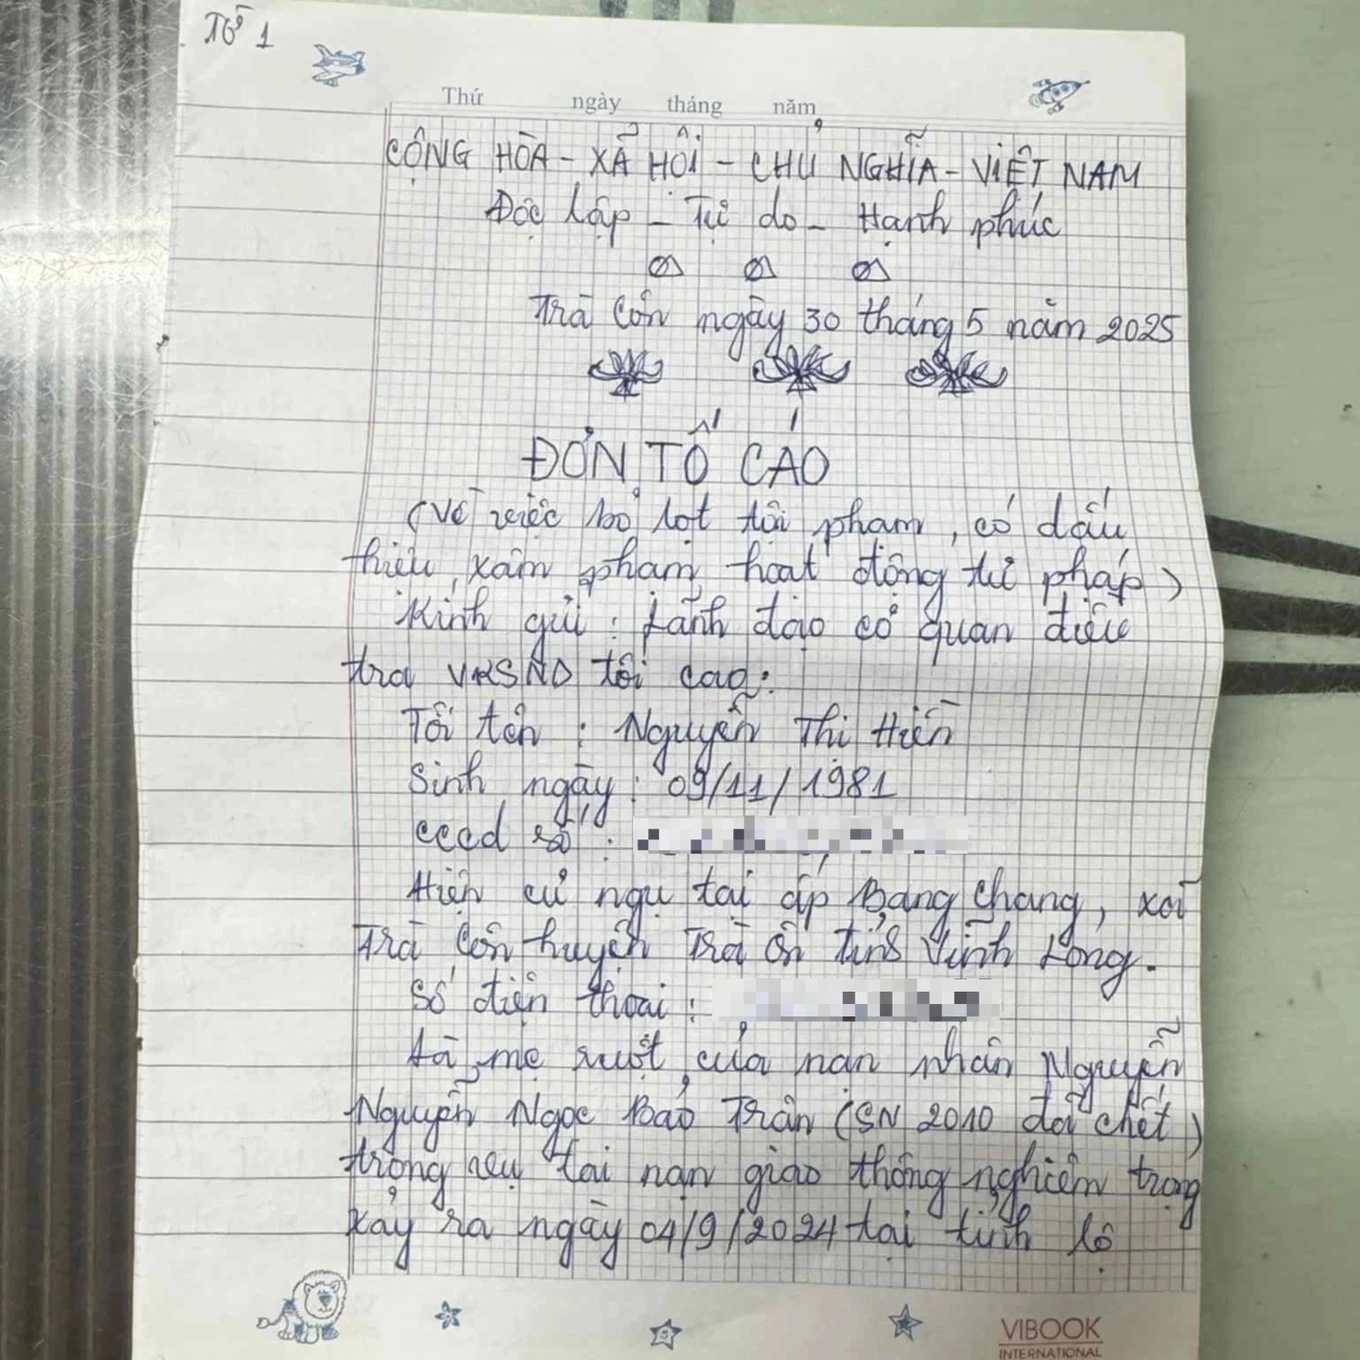 Tờ 1
Thứ ngày tháng năm
CỘNG HÒA - XÃ HỘI - CHỦ NGHĨA - VIỆT NAM
Độc lập - Tự do - Hạnh phúc
Trà Côn ngày 30 tháng 5 năm 2025
ĐƠN TỐ CÁO
(Về việc bỏ lọt tội phạm, có dấu
hiệu xâm phạm hoạt động tư pháp)
Kính gửi: Lãnh đạo cơ quan điều
tra VKSND tối cao:
Tôi tên : Nguyễn Thị Hiền
Sinh ngày: 09/11/1981
cccd số :
Hiện cư ngụ tại ấp Bang Chang, xã
Trà Côn huyện Trà Ôn tỉnh Vĩnh Long.
Số điện thoại :
Là mẹ ruột của nạn nhân Nguyễn
Nguyễn Ngọc Bảo Trân (SN 2010 đã chết)
trong vụ tai nạn giao thông nghiêm trọng
xảy ra ngày 04/9/2024 tại tỉnh lộ
VIBOOK
INTERNATIONAL